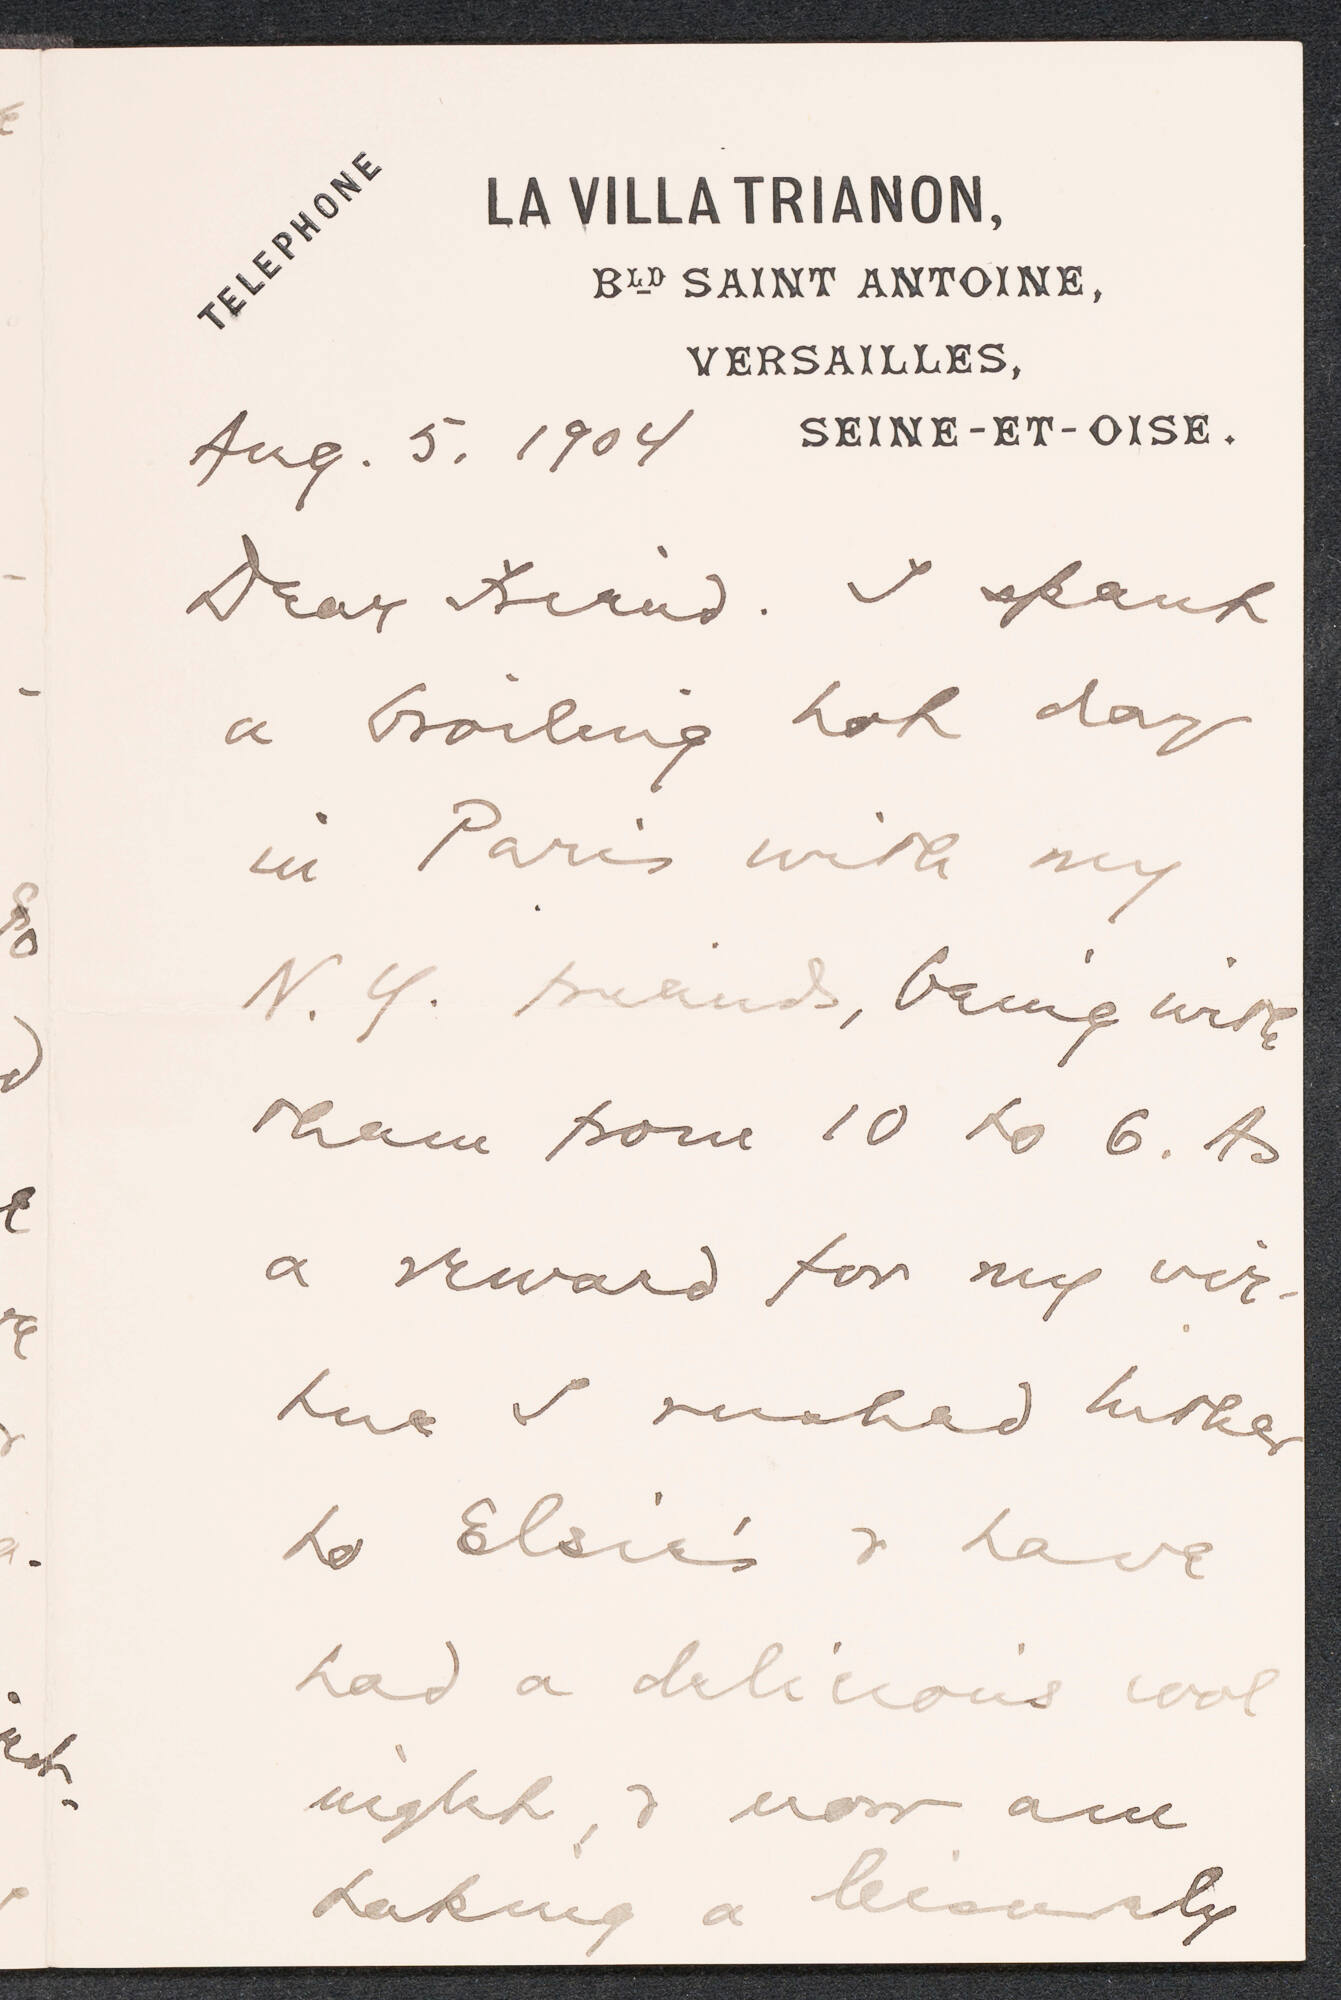 TELEPHONE
LA VILLA TRIANON,
BLD SAINT ANTOINE,
VERSAILLES,
SEINE-ET-OISE.
Aug. 5. 1904
Dear Friend. I spent
a broiling hot day
in Paris with my
N. Y. friends, being with
them from 10 to 6. As
a reward for my vir-
tue I rushed hither
to Elsie's & have
had a delicious cool
night, & now am
taking a leisurely